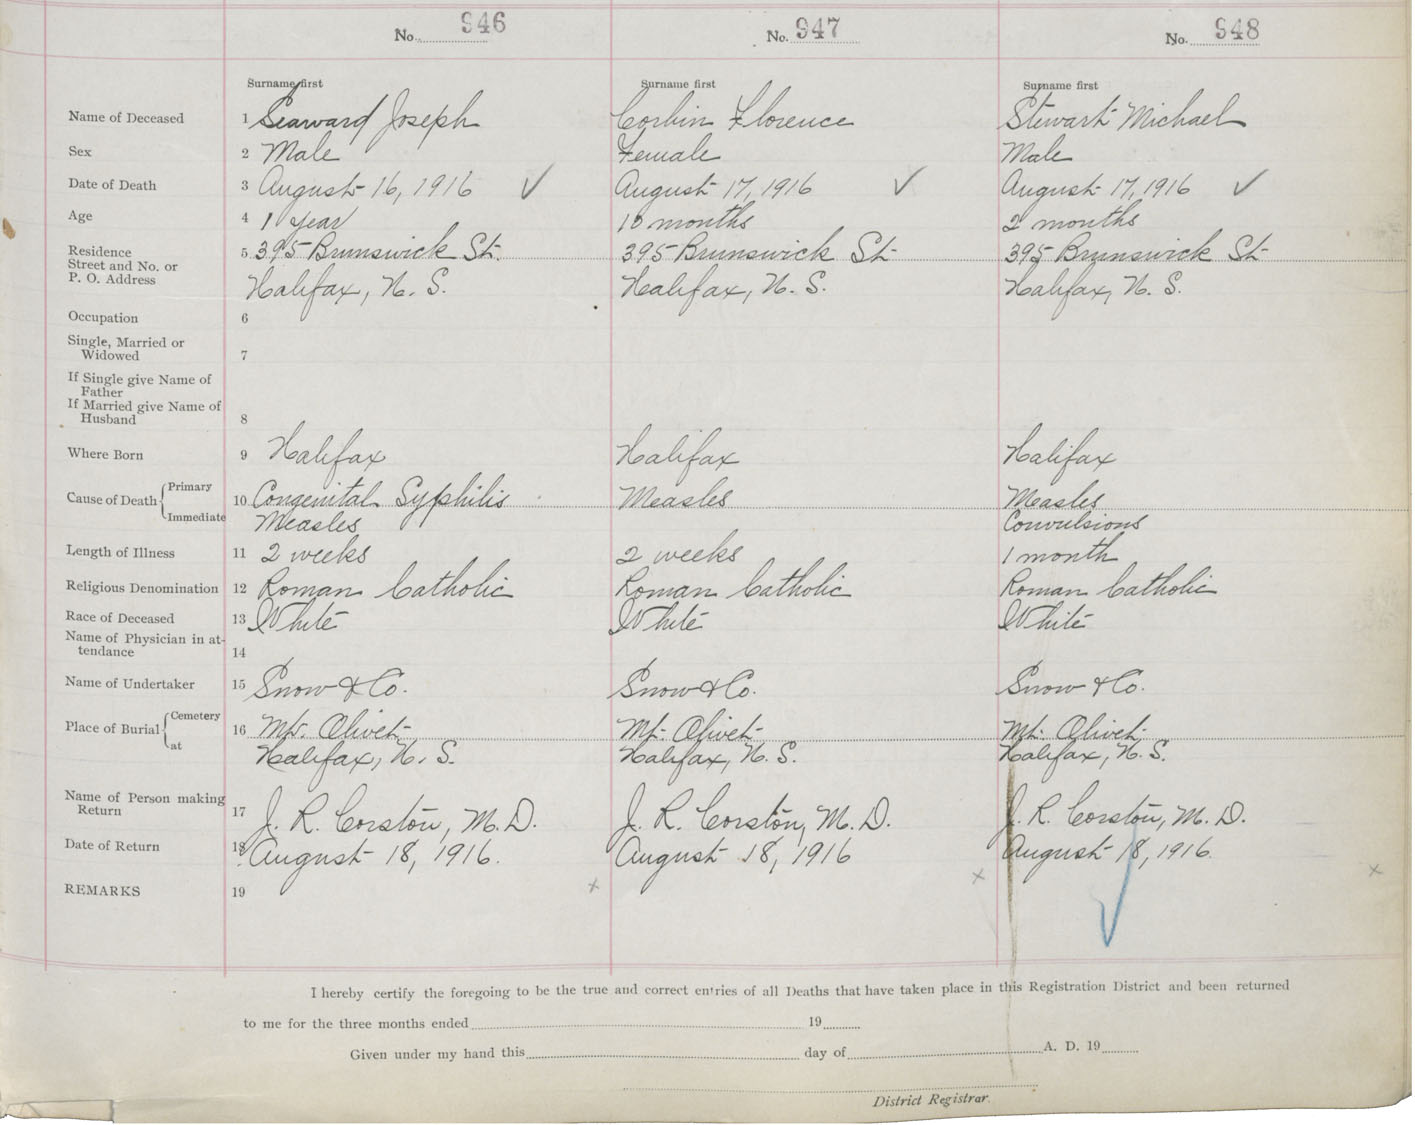 No. 946 No. 947 No. 948
Surname first Surname first Surname first
Name of Deceased 1 Seaward Joseph Corbin Florence Stewart Michael
Sex 2 Male Female Male
Date of Death 3 August 16, 1916 ✓ August 17, 1916 ✓ August 17, 1916 ✓
Age 4 1 year 10 months 2 months
Residence
Street and No. or 5 395 Brunswick St. 395 Brunswick St. 395 Brunswick St.
P. O. Address Halifax, N. S. Halifax, N. S. Halifax, N. S.
Occupation 6
Single, Married or
Widowed 7
If Single give Name of
Father
If Married give Name of
Husband 8
Where Born 9 Halifax Halifax Halifax
Primary
Cause of Death 10 Congenital Syphilis Measles Measles
Immediate Measles Convulsions
Length of Illness 11 2 weeks 2 weeks 1 month
Religious Denomination 12 Roman Catholic Roman Catholic Roman Catholic
Race of Deceased 13 White White White
Name of Physician in at-
tendance 14
Name of Undertaker 15 Snow & Co. Snow & Co. Snow & Co.
Cemetery
Place of Burial 16 Mt. Olivet Mt. Olivet Mt. Olivet
at Halifax, N. S. Halifax, N. S. Halifax, N. S.
Name of Person making
Return 17 J. R. Corston, M. D. J. R. Corston, M. D. J. R. Corston, M. D.
Date of Return 18 August 18, 1916. August 18, 1916 August 18, 1916.
REMARKS 19 x x x
I hereby certify the foregoing to be the true and correct entries of all Deaths that have taken place in this Registration District and been returned
to me for the three months ended 19
Given under my hand this day of A. D. 19
District Registrar.